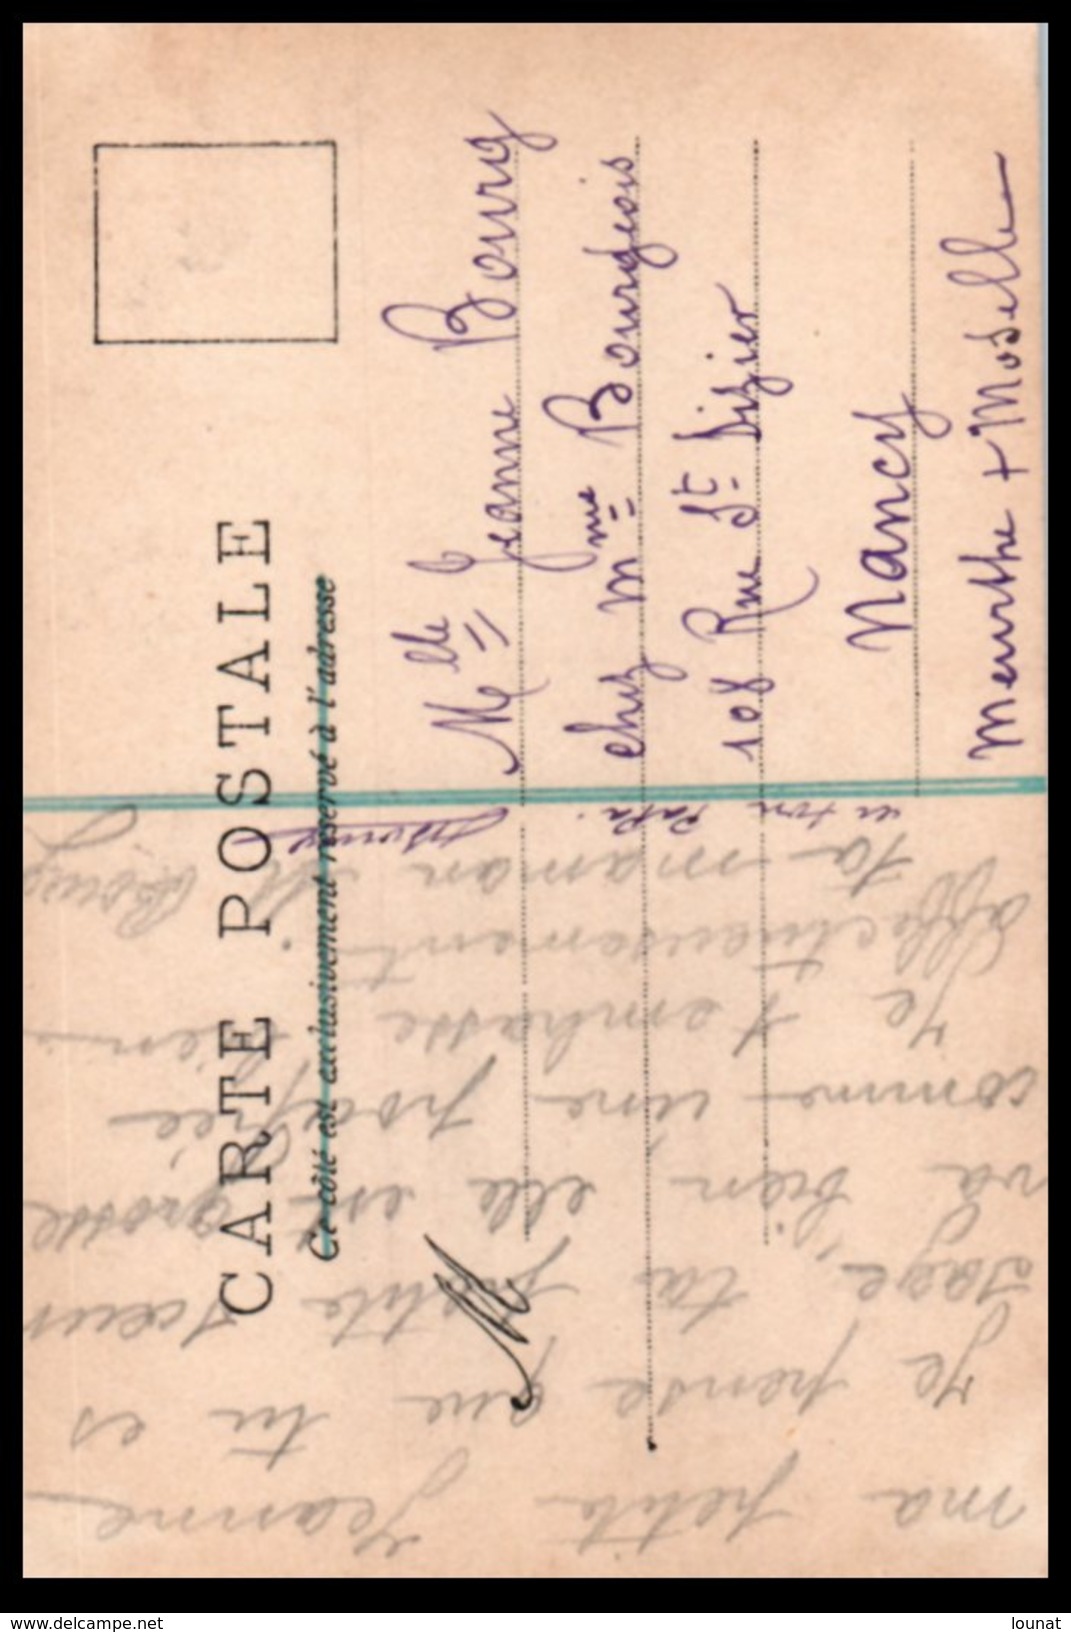 CARTE POSTALE
Ce côté est exclusivement réservé à l'adresse
M
Melle Jeanne Bourg
chez Mme Bourgeois
108 Rue St Dizier
Nancy
Meurthe + Moselle
ma petite Jeanne
Je pense que tu es
sage, ta petite sœur
va bien elle est grosse
comme une
Je t embrasse bien
affectueusement.
ta maman
ton Papa
https://www.delcampe.net
lounat